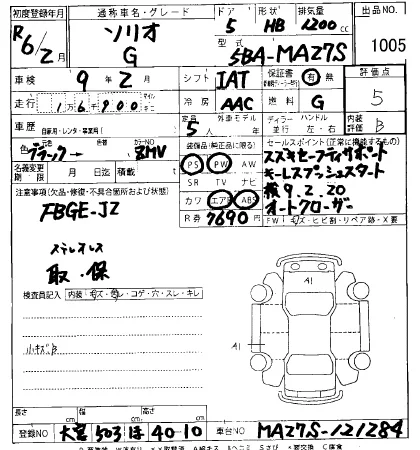 初度登録年月 通称車名・グレード ドア 形状 排気量 出品NO.
R6/2月 ソリオ G 5 HB 1200cc 1005
型式 5BA-MA27S
車検 9年2月 シフト IAT 保証書 有 無 評価点
走行 16900 冷房 AAC 燃料 G 5
車歴 自家用・レンタ・事業用( ) 定員 5人 ディーラー 並行 ハンドル 左・右 内装 B
色 ブラック 色替 カラーNO ZMV 装備品(純正品に限る) セールスポイント(正常に機能するもの)
名義変更期限 月 日 積載 PS PW AW スズキセーフティサポート
注意事項(欠品・修復・不具合箇所および状態) SR TV ナビ キーレスプッシュスタート
FBGE-JZ カワ エアB ABS 検9.2.20
R券 7690 オートクローザー
ステレオレス
取・保
検査員記入 内装・キズ・コゲ・穴・スレ・キレ
小キズB
A1
A1
長さ cm 幅 cm 高さ cm
登録NO 大宮 503 ほ 40-10 車台NO MA27S-121284